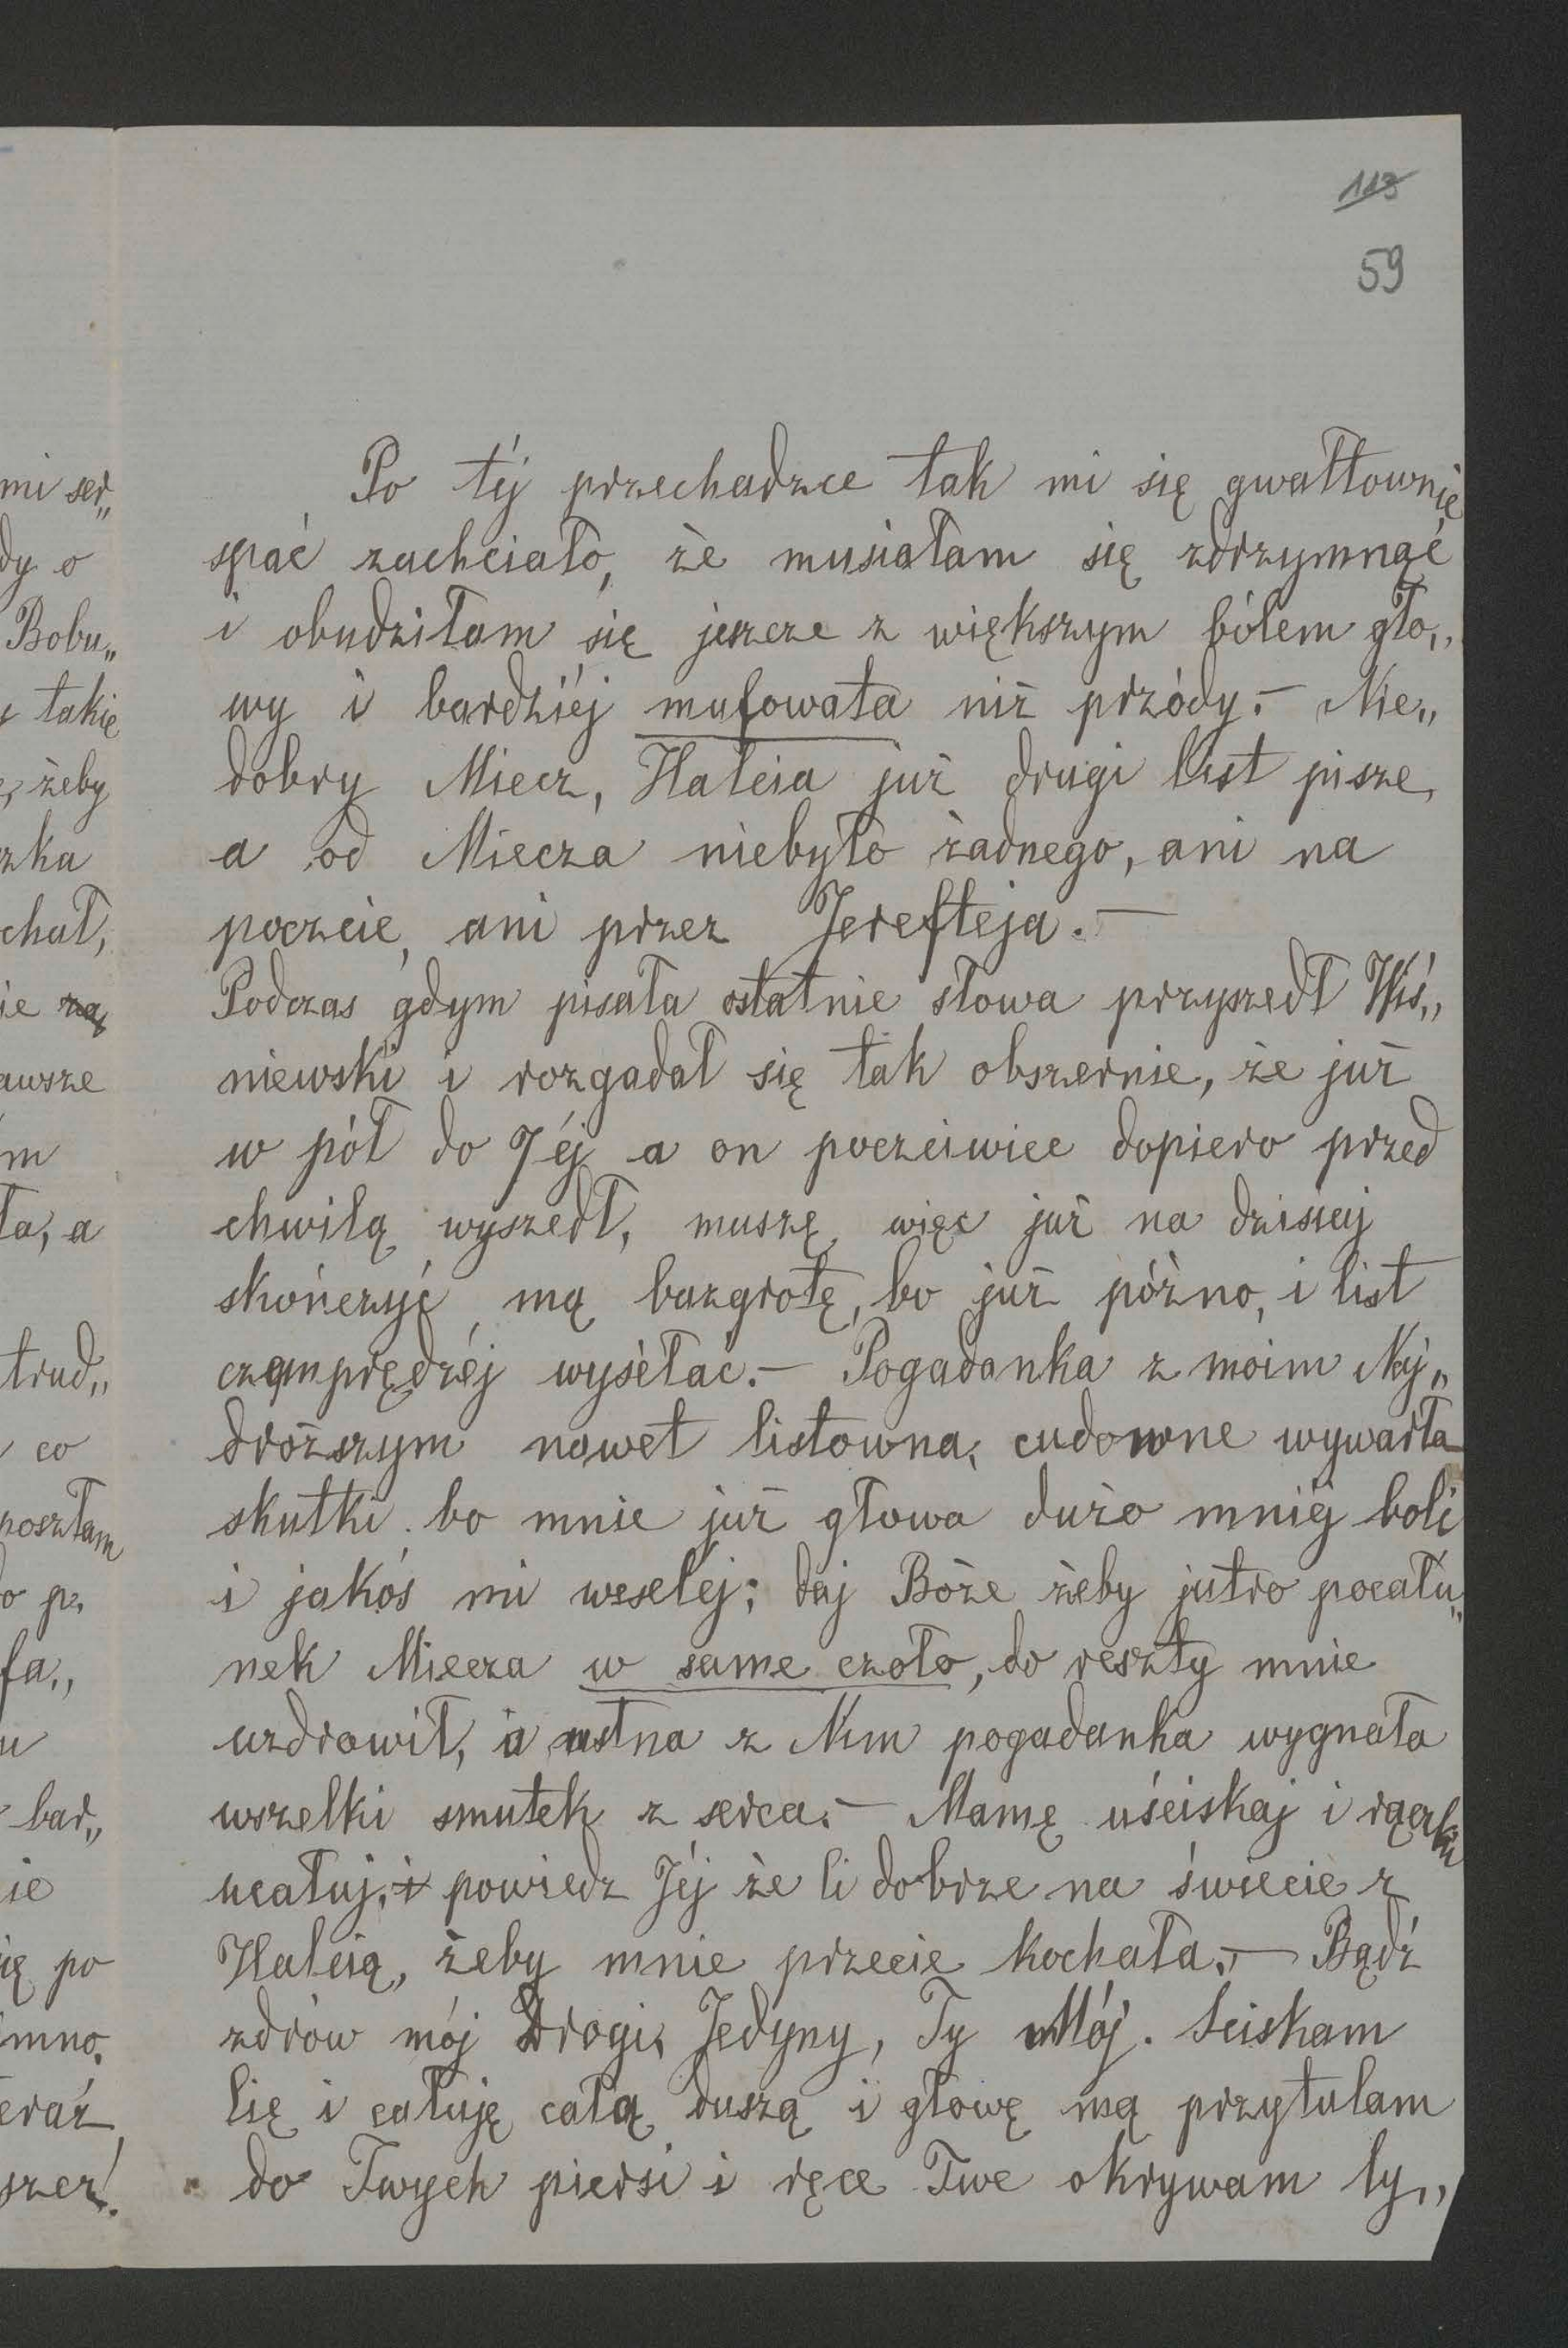 113
59
Po téj przechadzce tak mi się gwałtownie
spać zachciało, że musiałam się zdrzymnąć
i obudziłam się jeszcze z większym bólem gło„
wy i bardziéj mufowata niż przódy. – Nie„
dobry Miecz, Halcia już drugi list pisze,
a od Miecza niebyło żadnego, ani na
poczcie, ani przez Jerefteja. –
Podczas gdym pisała ostatnie słowa przyszedł Wiś„
niewski i rozgadał się tak obszernie, że już
w pół do 7éj a on poczciwiec dopiero przed
chwilą wyszedł, muszę więc już na dzisiaj
skończyć mą bazgrotę, bo już późno, i list
czemprędzéj wysełać. – Pogadanka z moim Naj„
droższym nawet listowna, cudowne wywarła
skutki, bo mnie już głowa dużo mniéj boli
i jakoś mi weseléj; daj Boże żeby jutro pocału„
nek Miecza w same czoło, do reszty mnie
uzdrowił, a ustna z Nim pogadanka wygnała
wszelki smutek z serca. – Mamę uściskaj i rączki
ucałuj, i powiedz Jéj że li dobrze na świecie z
Halcią, żeby mnie przecie kochała. – Bądź
zdrów mój Drogi, Jedyny, Ty Mój. Ściskam
Cię i całuję całą duszą i głowę mą przytulam
do Twych piersi i ręce Twe okrywam ty„
mi ser„
dy o
Bobu„
takie
żeby
zka
chał,
ie
awsze
m
ła, a
trud„
co
poszłam
o p.
fa„
u
bar„
ie
ię po
imno,
eraz
szer!